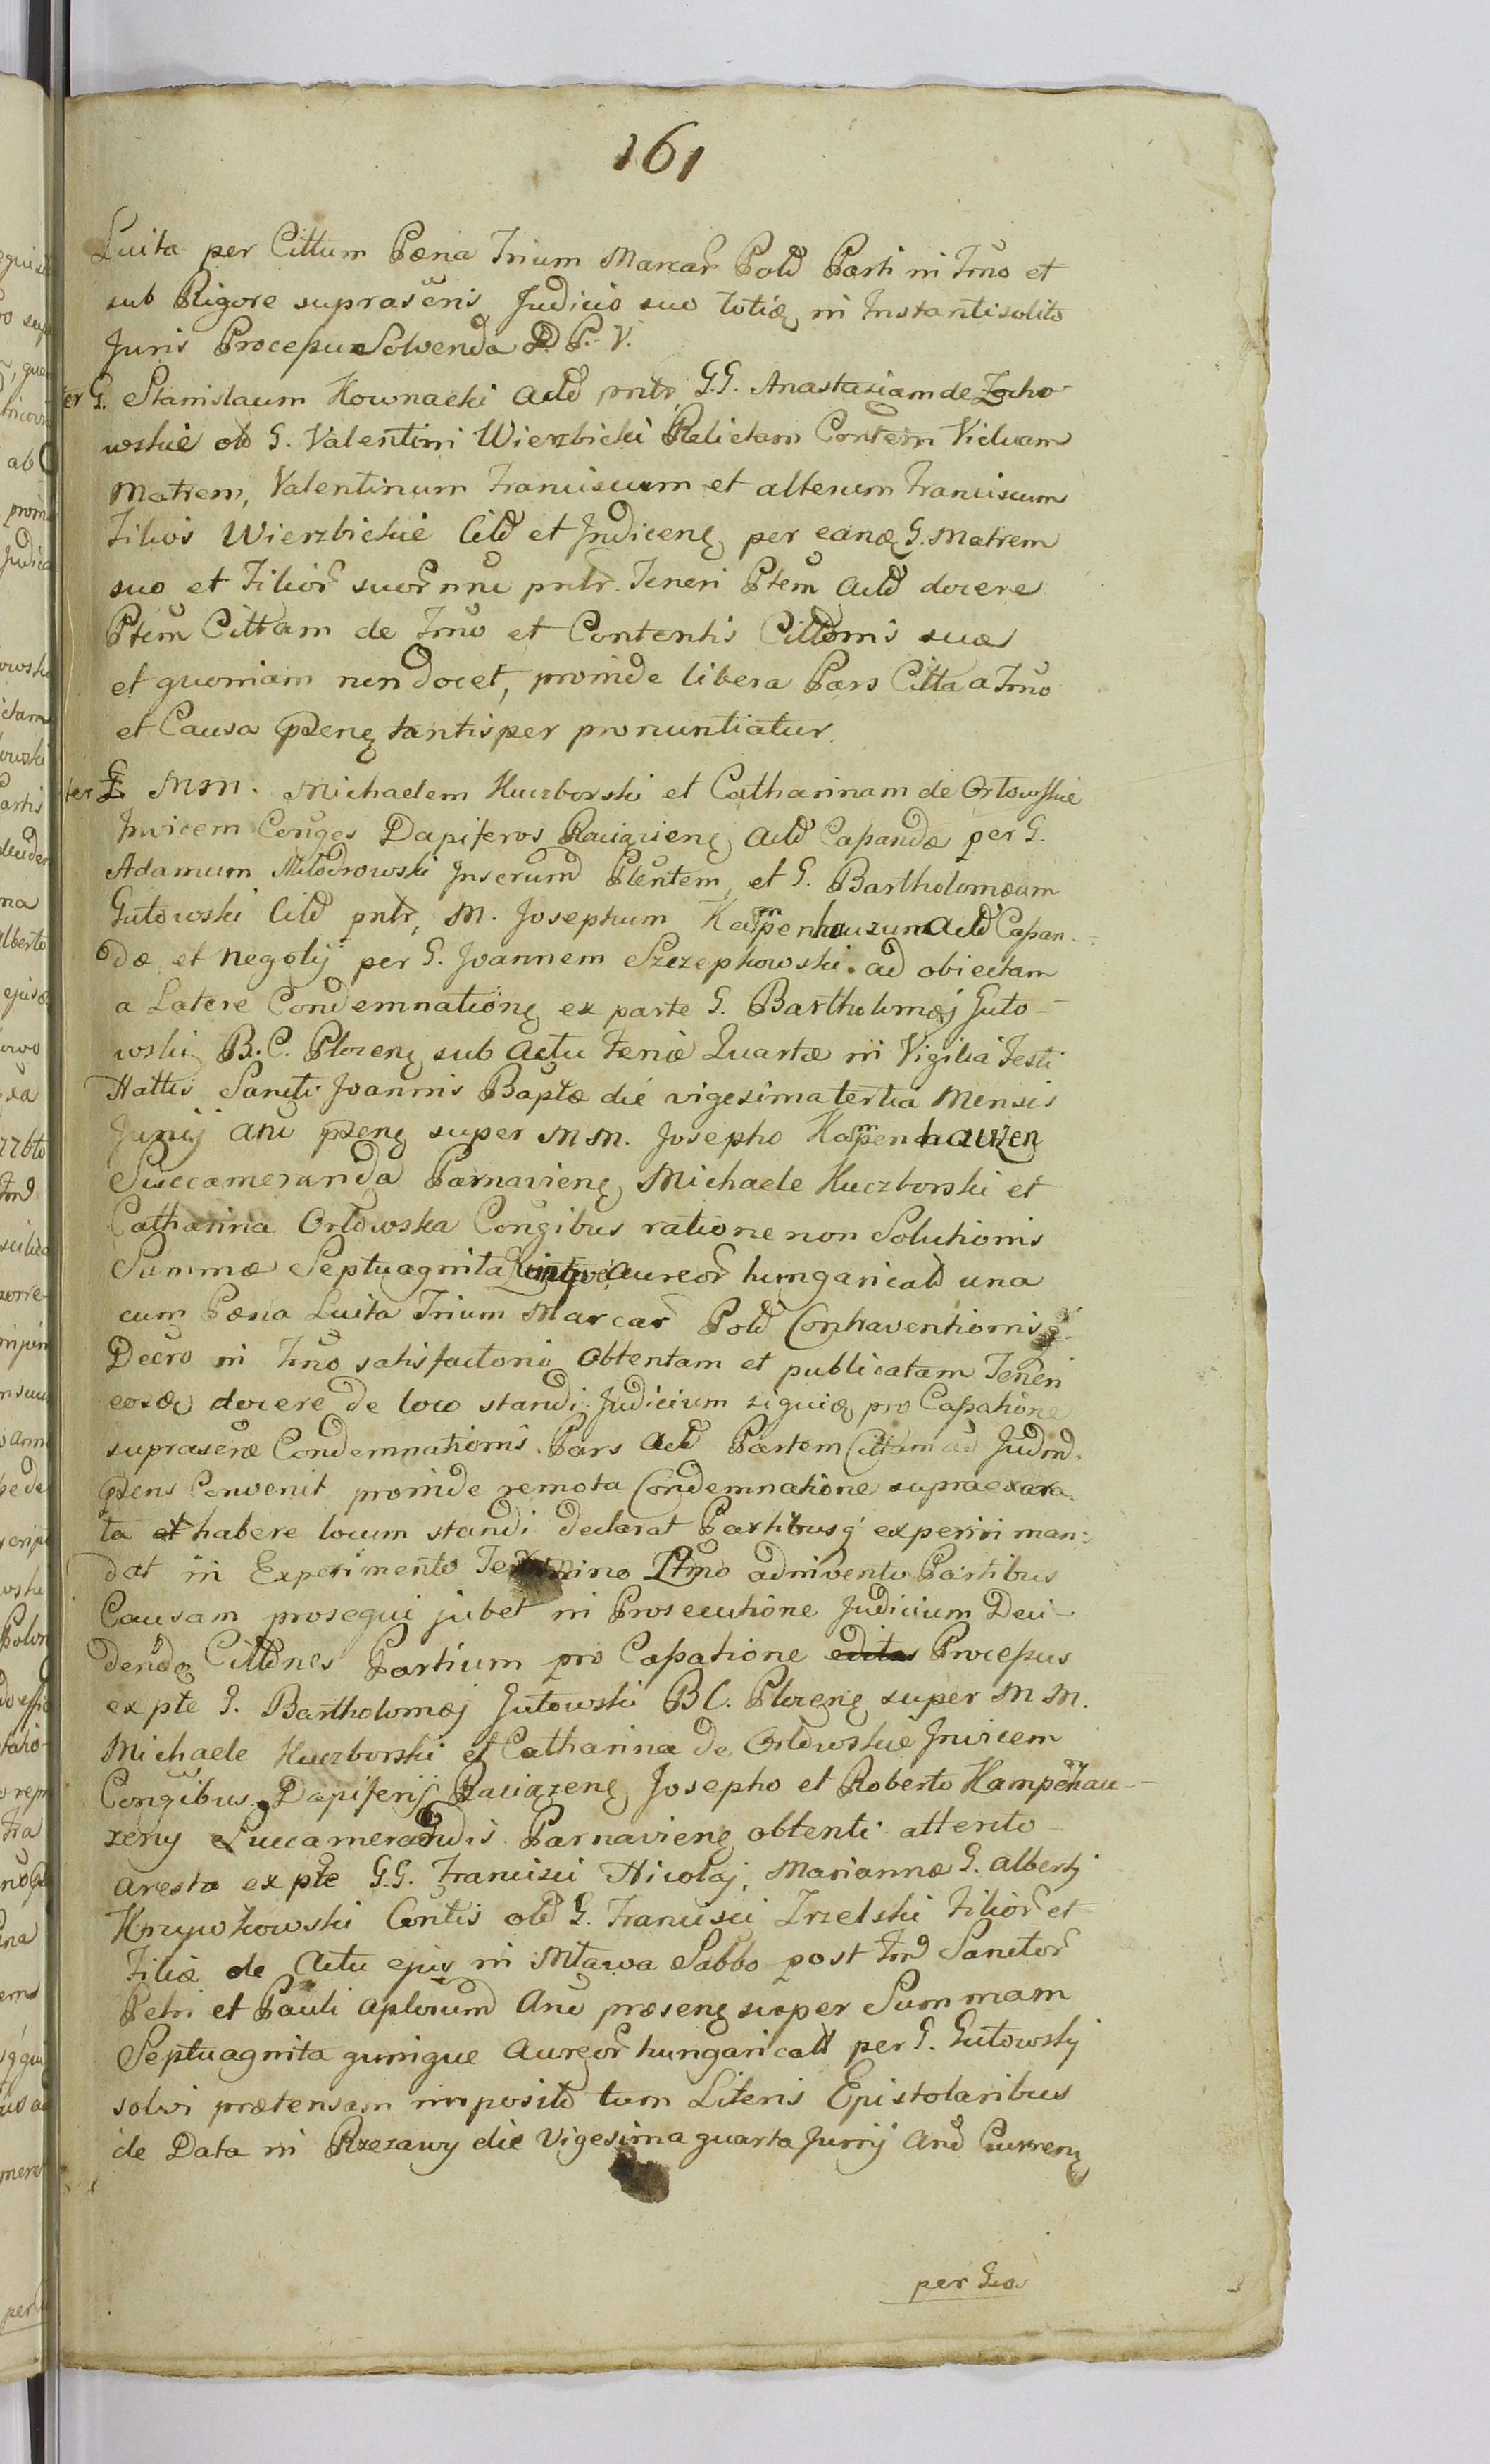 161
Luita per Cittum Pæna Trium Marcar Pold Parti in Tmo et
sub Rigore suprascris Judicio suo totiq in Instanti solito
Juris Processu Solvenda D. P. V.
ter G. Stanislaum Kownacki Actd pntr G.G. Anastasiam de Zocho
wskie old G. Valentini Wierzbicki Relictam Contem Viduam
Matrem, Valentinum Franciscum et alterum Franciscum
Filios Wierzbickie Citd et Judiceng per eanq G. Matrem
suo et Filior suor nne pntr. Teneri Ptem Actd docere
Ptem Cittam de Tmo et Contentis Cittonis suæ
et quoniam non docet, proinde libera Pars Citta a Tmo
et Causa Pseng tantisper pronuntiatur.
ter G MM. Michaelem Kuczborski et Catharinam de Orłowskie
Invicem Conges Dapiferos Raciązieng Actd Cassandæ per G.
Adamum Młodrowski Inserund Plentem, et G. Bartholomæum
Gutowski Citd pntr, M. Josephum Kampenhauzum Actd Cassan-
dæ et Negotij per G. Joannem Szczepkowski. ad obiectam
a Latere Condemnationę ex parte G. Bartholomæj Guto-
wski B. C. Ploceng sub Actu Feriæ Quartæ in Vigilia Festi
Nattis Sancti Joannis Baptæ die vigesima tertia Mensis
Junij Ani pseng super MM. Josepho Kampenhauzen
Succameranda Parnavieng Michaele Kuczborski et
Catharina Orłowska Congibus ratione non Solutionis
Summæ Septuaginta Quinque Aureor hungaricald una
cum Pæna Luita Trium Marcar Pold Contraventionisq
Decro in Tmo satisfactorio Obtentam et publicatam Teneri
eosdq docere de loco standi Judicium siquiq pro Cassatione
suprascræ Condemnationis. Pars Actd Partem Cittam ad Judmd.
Psens Convenit proinde remota Condemnatione supraexara-
ta et habere locum standi declarat Partibusq experiri man-
dat in Experimento Termino Ptmo adinvento Partibus
Causam prosequi jubet in Prosecutione Judicium Deci-
dendo Cittones Partium pro Cassatione editas Processus
ex pte G. Bartholomæj Gutowski BC. Ploceng super MM.
Michaele Kuczborski et Catharina de Orłowskie Invicem
Congibus Dapiferis Raciązeng Josepho et Roberto Kampenhau-
zeny Succamerandis Parnavieng obtenti attento
aresto ex pte G.G. Francisci Nicolaj, Mariannæ G. Alberti
Krzywkowski Contis old G. Francisci Zrzelski Filior et
Filiæ de Actu ejus in Mława Sabbo post Fmd Sanctor
Petri et Pauli Aplorumd And præseng super Summam
Septuaginta quinque Aureor hungaricald per G. Gutowski
solvi prætensam impositd tum Literis Epistolaribus
de Data in Rzezawy die Vigesima quarta Junij And Curreng
per Gos